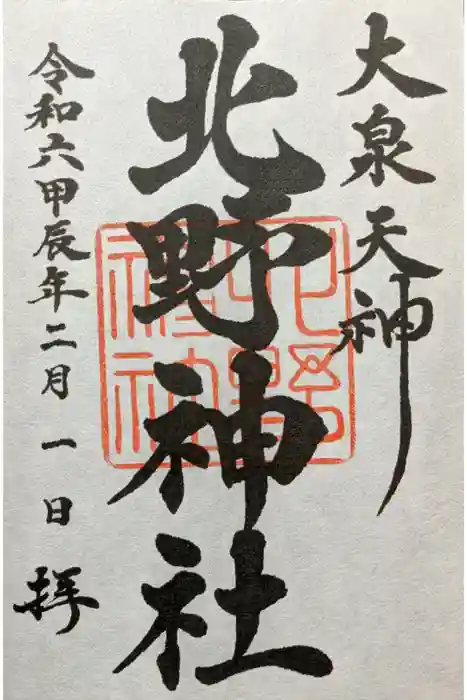 大泉天神
北野神社
北野
神社
令和六甲辰年二月一日拝